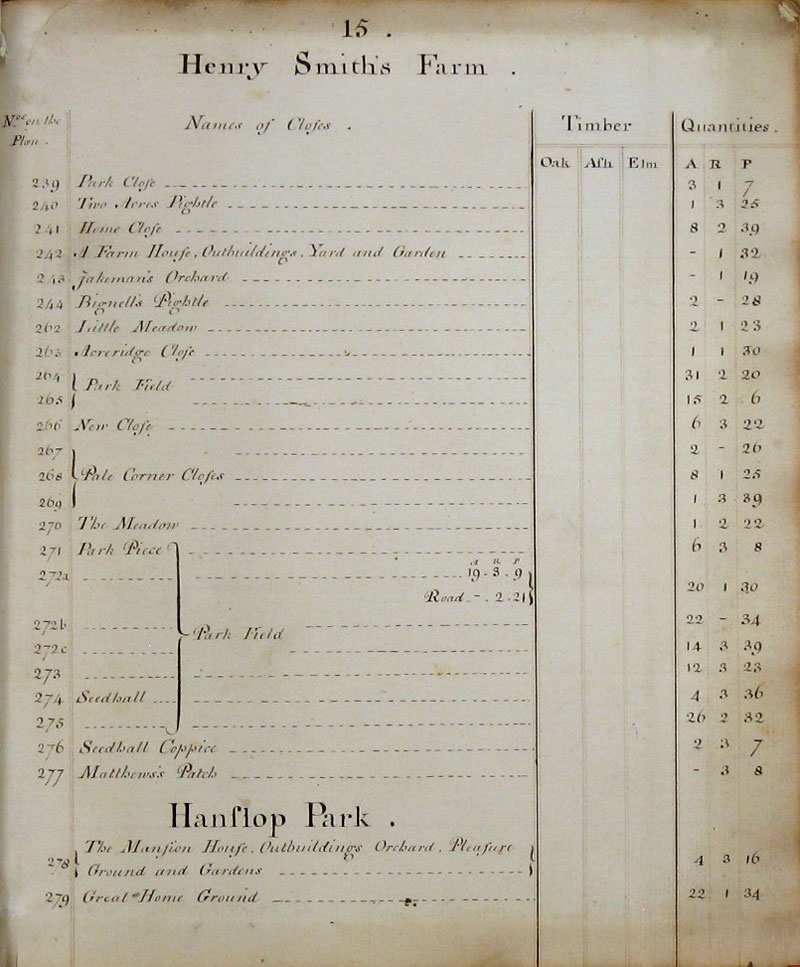 15 .
Henry Smith's Farm .
Nos on the Plan . Names of Closes . Timber Quantities .
Oak Ash Elm A R P
239 Park Close 3 1 7
240 Two Acres Pightle 1 3 25
241 Home Close 8 2 39
242 A Farm House, Outbuildings, Yard and Garden - 1 32
243 Jakeman's Orchard - 1 19
244 Bignell's Pightle 2 - 28
262 Little Meadow 2 1 23
263 Acreridge Close 1 1 30
264 31 2 20
Park Field
265 15 2 6
266 New Close 6 3 22
267 2 - 26
268 Pale Corner Closes 8 1 25
269 1 3 39
270 The Meadow 1 2 22
271 Park Piece 6 3 8
A R P
272a 19 - 3 - 9
20 1 30
Road - . 2 . 21
272b 22 - 34
Park Field
272c 14 3 39
273 12 3 23
274 Seedhall 4 3 36
275 26 2 32
276 Seedhall Coppice 2 3 7
277 Matthews's Patch - 3 8
Hanslop Park .
The Mansion House, Outbuildings Orchard, Pleasure
278 4 3 16
Ground and Gardens
279 Great Home Ground 22 1 34